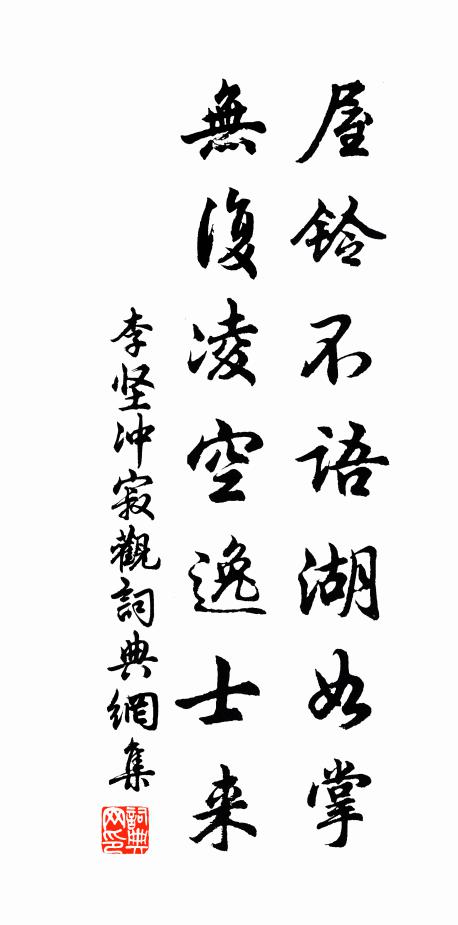 屋鈴不語湖如掌
無復凌空逸士来
李坚冲寂觀詞典網集
詞典网印